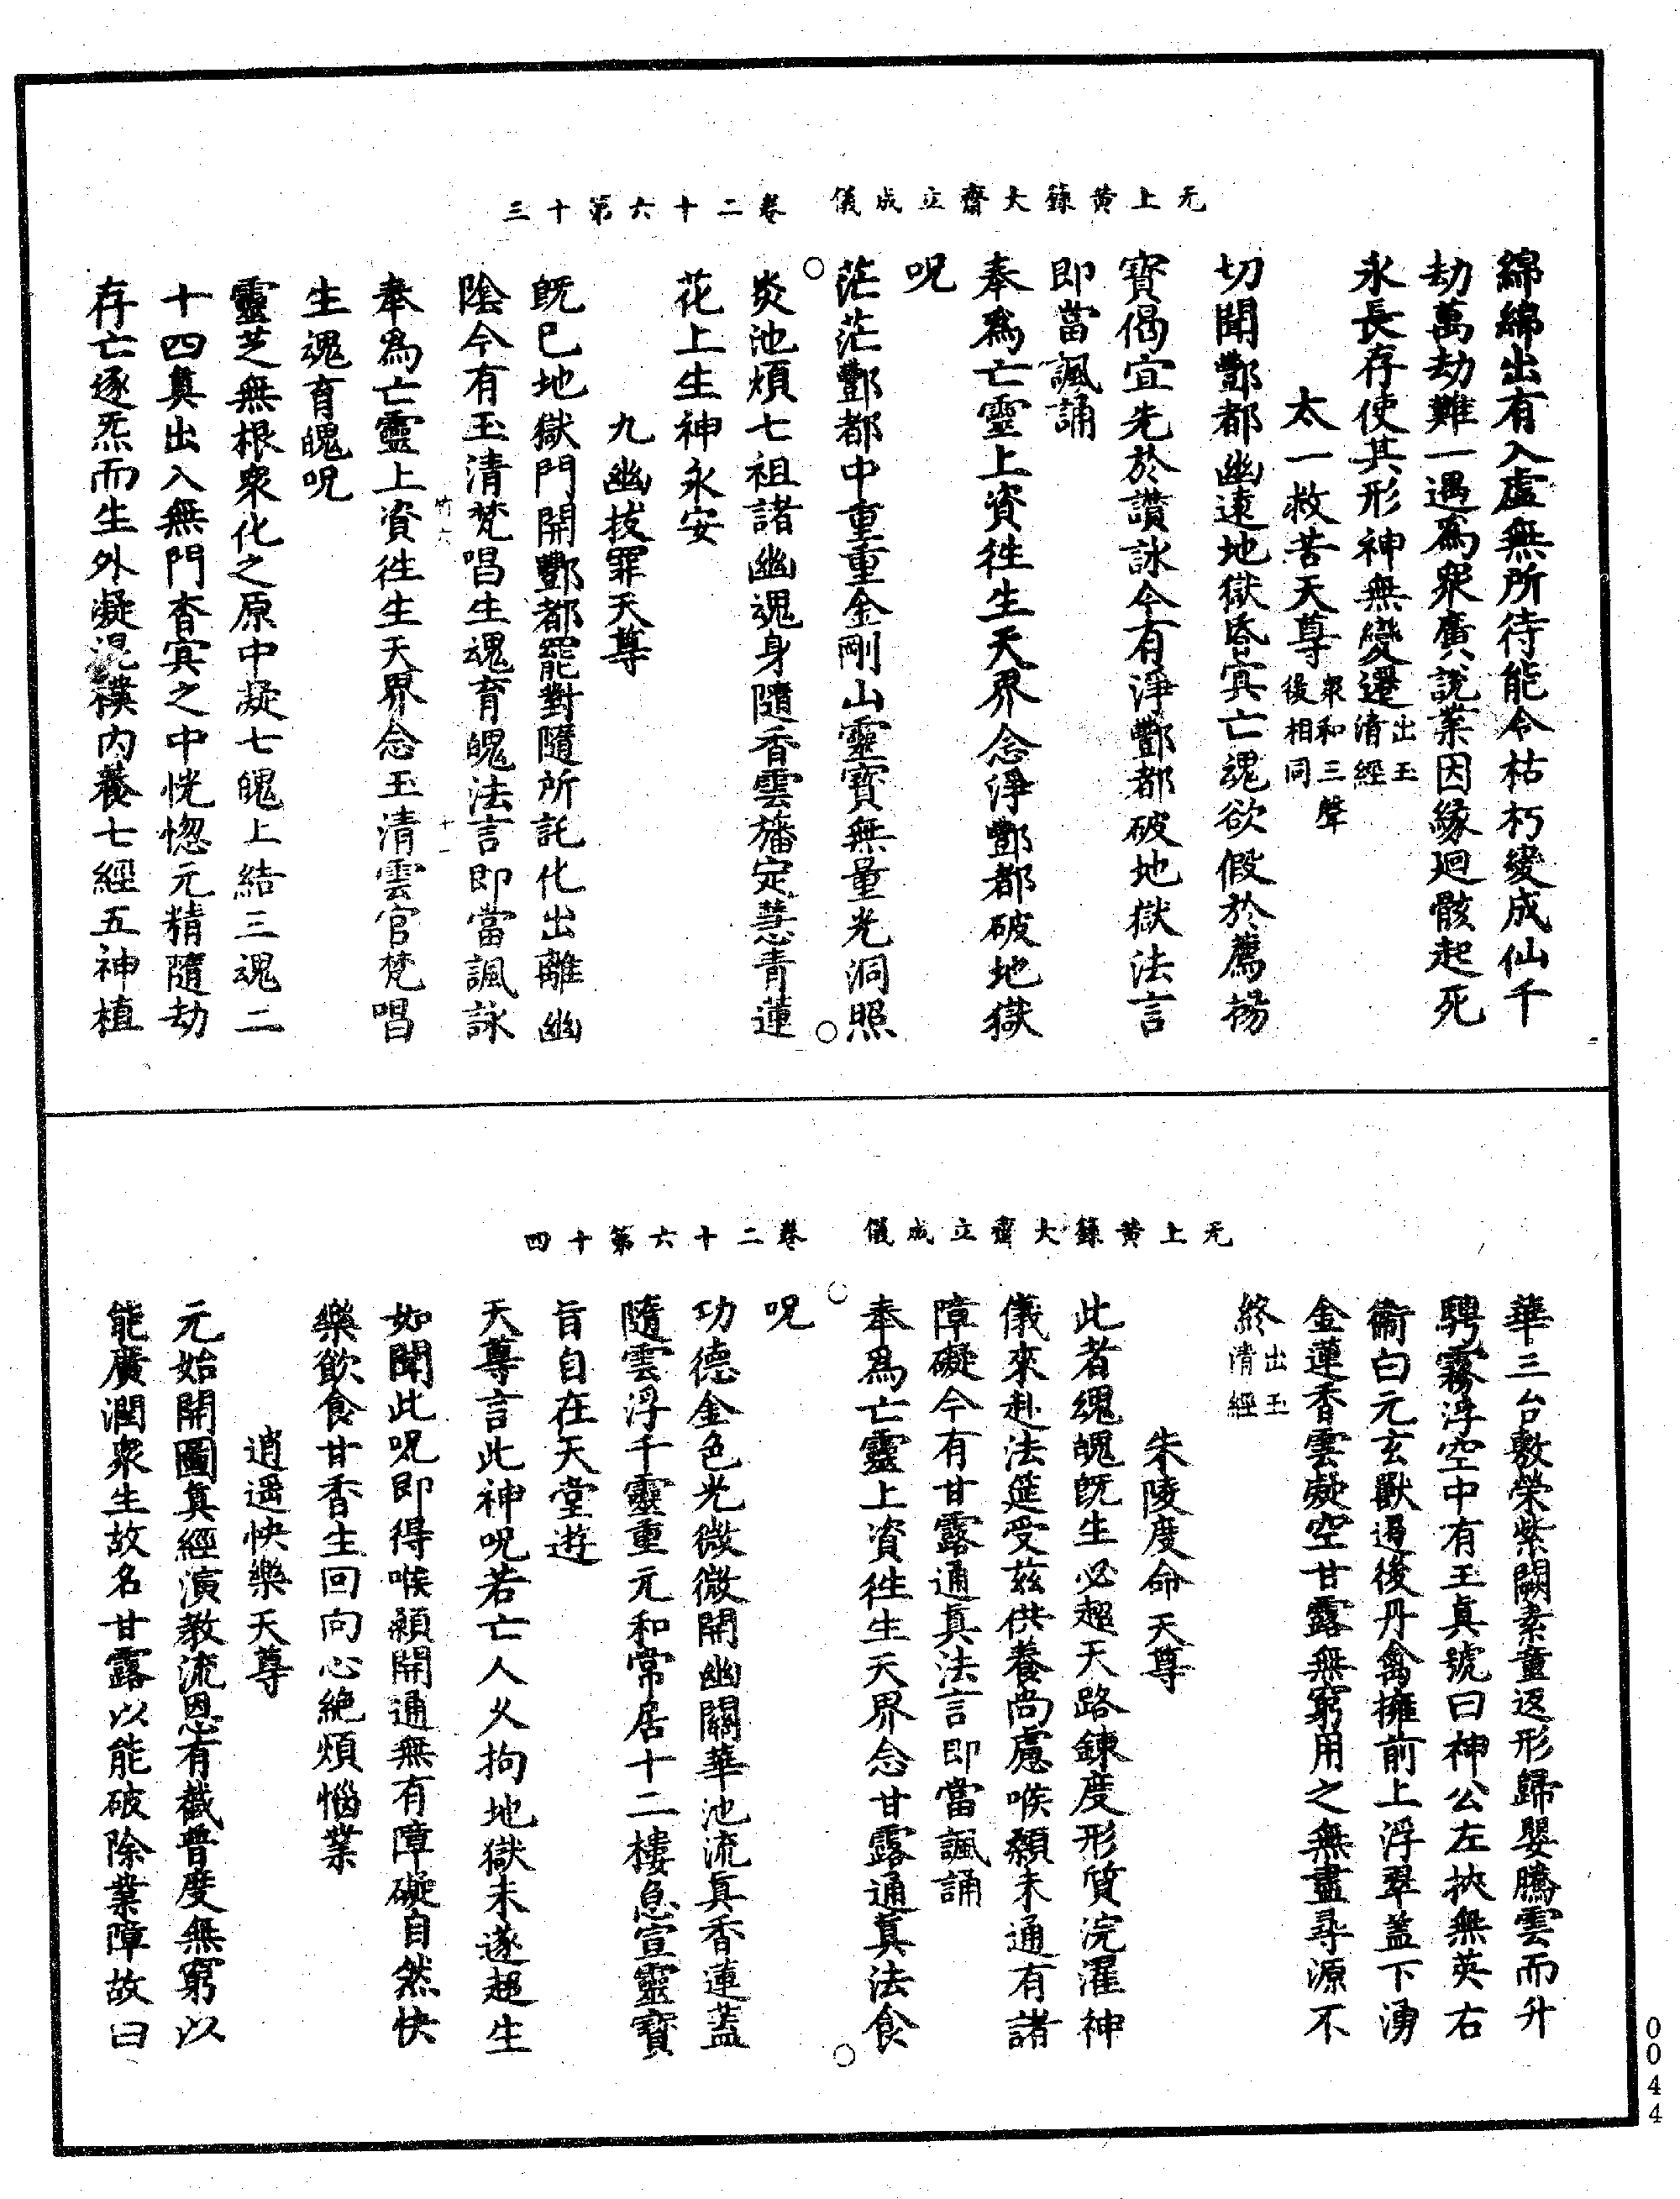 无上黄籙大齋立成儀　卷二十六第十三
綿綿出有入虛無所待能令枯朽變成仙千
劫萬劫難一遇爲衆廣說業因緣廻骸起死
永長存使其形神無變遷出玉清經
太一救苦天尊衆和三聲後相同
切聞酆都幽遠地獄昏㝠亡魂欲假於薦揚
寶偈宜先於讚詠今有淨酆都破地獄法言
即當諷誦
奉爲亡靈上資徃生天界念淨酆都破地獄
呪
茫茫酆都中重重金剛山靈寶無量光洞照
炎池煩七祖諸幽魂身隨香雲旛定慧青蓮
花上生神永安
九幽拔罪天尊
旣已地獄門開酆都罷對隨所託化出離幽
陰今有玉清梵唱生魂育魄法言即當諷詠
奉爲亡靈上資徃生天界念玉清雲官梵唱
生魂育魄呪
靈芝無根衆化之原中凝七魄上結三魂二
十四眞出入無門杳㝠之中恍惚元精隨劫
存亡逐炁而生外凝混樸内養七經五神植
无上黄籙大齋立成儀　卷二十六第十四
華三台敷榮紫闕素童返形歸嬰騰雲而升
騁霧浮空中有玉眞號曰神公左挾無英右
衞白元玄獸遏後丹禽擁前上浮翠蓋下湧
金蓮香雲凝空甘露無窮用之無盡尋源不
終出玉清經
朱陵度命天尊
此者魂魄旣生必超天路鍊度形質浣濯神
儀來赴法筵受茲供養尚慮喉顙未通有諸
障礙今有甘露通真法言即當諷誦
奉爲亡靈上資徃生天界念甘露通眞法食
呪
功德金色光微微開幽關華池流真香蓮蓋
隨雲浮千靈重元和常居十二樓急宣靈寶
旨自在天堂遊
天尊言此神呪若亡人乆拘地獄未遂超生
如聞此呪即得喉顙開通無有障礙自然快
樂飲食甘香生回向心絶煩惱業
逍遥快樂天尊
元始開圖眞經演教流恩有截普度無窮以
能廣潤衆生故名甘露以能破除業障故曰
0044